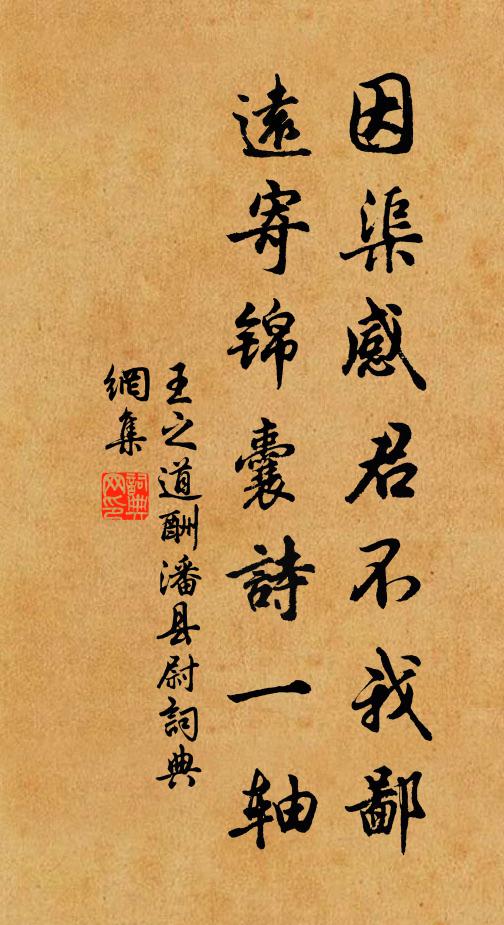 因渠感君不我鄙
遠寄锦囊詩一轴
王之道酬潘县尉詞典
網集
詞典
网印